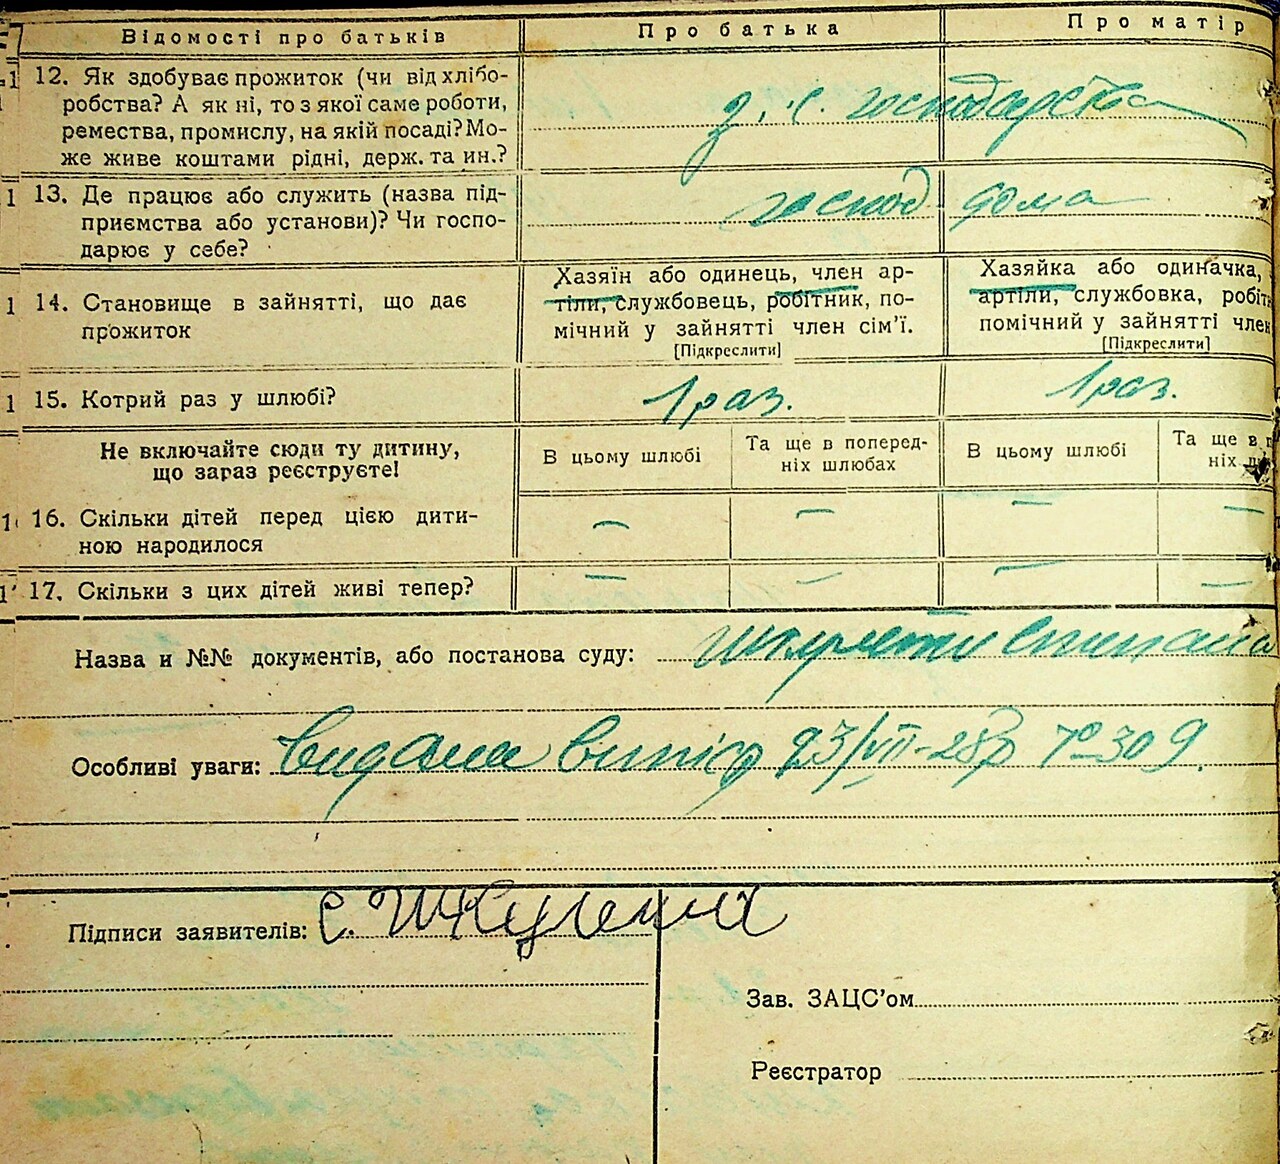 Відомості про батьків
Про батька
Про матір
12. Як здобуває прожиток (чи від хлібо-
робства? А як ні, то з якої саме роботи,
ремества, промислу, на якій посаді? Мо-
же живе коштами рідні, держ. та ин.?
з. с. господарства
13. Де працює або служить (назва під-
приємства або установи)? Чи госпо-
дарює у себе?
господ. дома
14. Становище в зайнятті, що дає
прожиток
Хазяїн або одинець, член ар-
тіли, службовець, робітник, по-
мічний у зайнятті член сім’ї.
[Підкреслити]
Хазяйка або одиначка,
артіли, службовка, робітн
помічний у зайнятті член
[Підкреслити]
15. Котрий раз у шлюбі?
1 раз.
1 раз.
Не включайте сюди ту дитину,
що зараз реєструєте!
В цьому шлюбі
Та ще в поперед-
ніх шлюбах
В цьому шлюбі
Та ще в п
ніх
16. Скільки дітей перед цією дити-
ною народилося
— — — —
17. Скільки з цих дітей живі тепер?
— — — —
Назва и №№ документів, або постанова суду:
Особливі уваги: видана випись 23/VII-28р № 309.
Підписи заявителів: С.
Зав. ЗАЦС’ом
Реєстратор